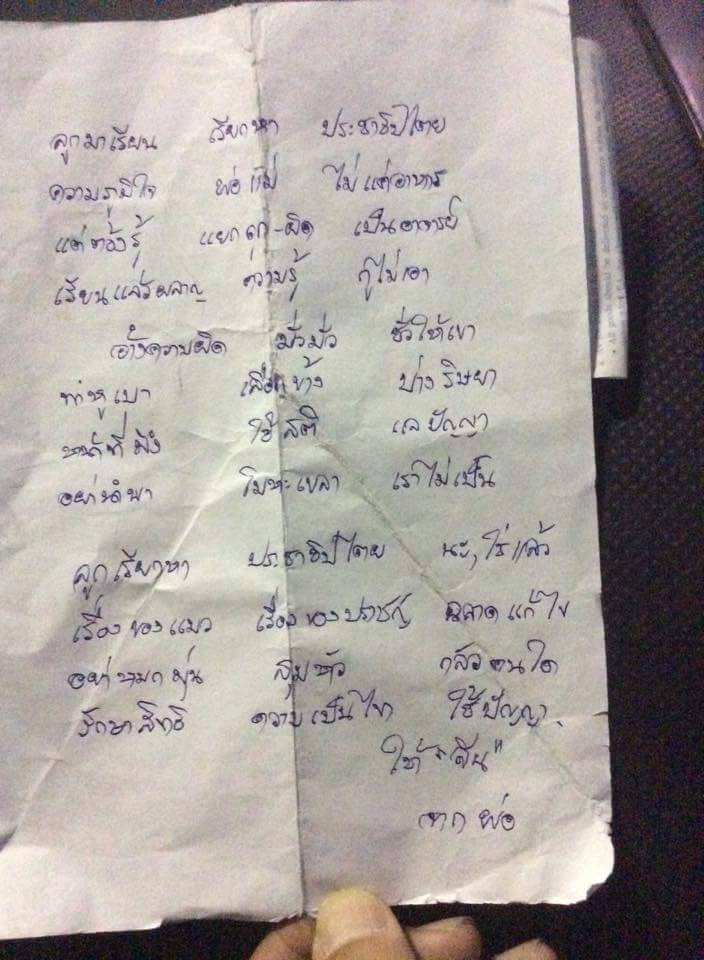 ลูกมาเรียน เรียกหา ประชาธิปไตย
ความภูมิใจ พ่อแม่ ไม่แค่อาหาร
แต่ต้องรู้ แยกถูก-ผิด เป็นอาจารย์
เรียนแล้วผลาญ ความรู้ กูไม่เอา
อ้างความผิด มั่วมั่ว ชั่วให้เขา
ทำหูเบา เลือกข้าง ริษยา
หน้าที่มึง ใช้สติ แลปัญญา
อย่านำพา โมหะเขลา เราไม่เป็น
ลูกเรียกหา ประชาธิปไตย นะ, ใช่แล้ว
เรื่องของแมว เรื่องของปราชญ์ ฉลาดแก้ไข
อย่าหมกมุ่น สุมหัว กลัวคนใด
รักษาสิทธิ ความเป็นไท ใช้ปัญญา
ให้ "
จาก พ่อ